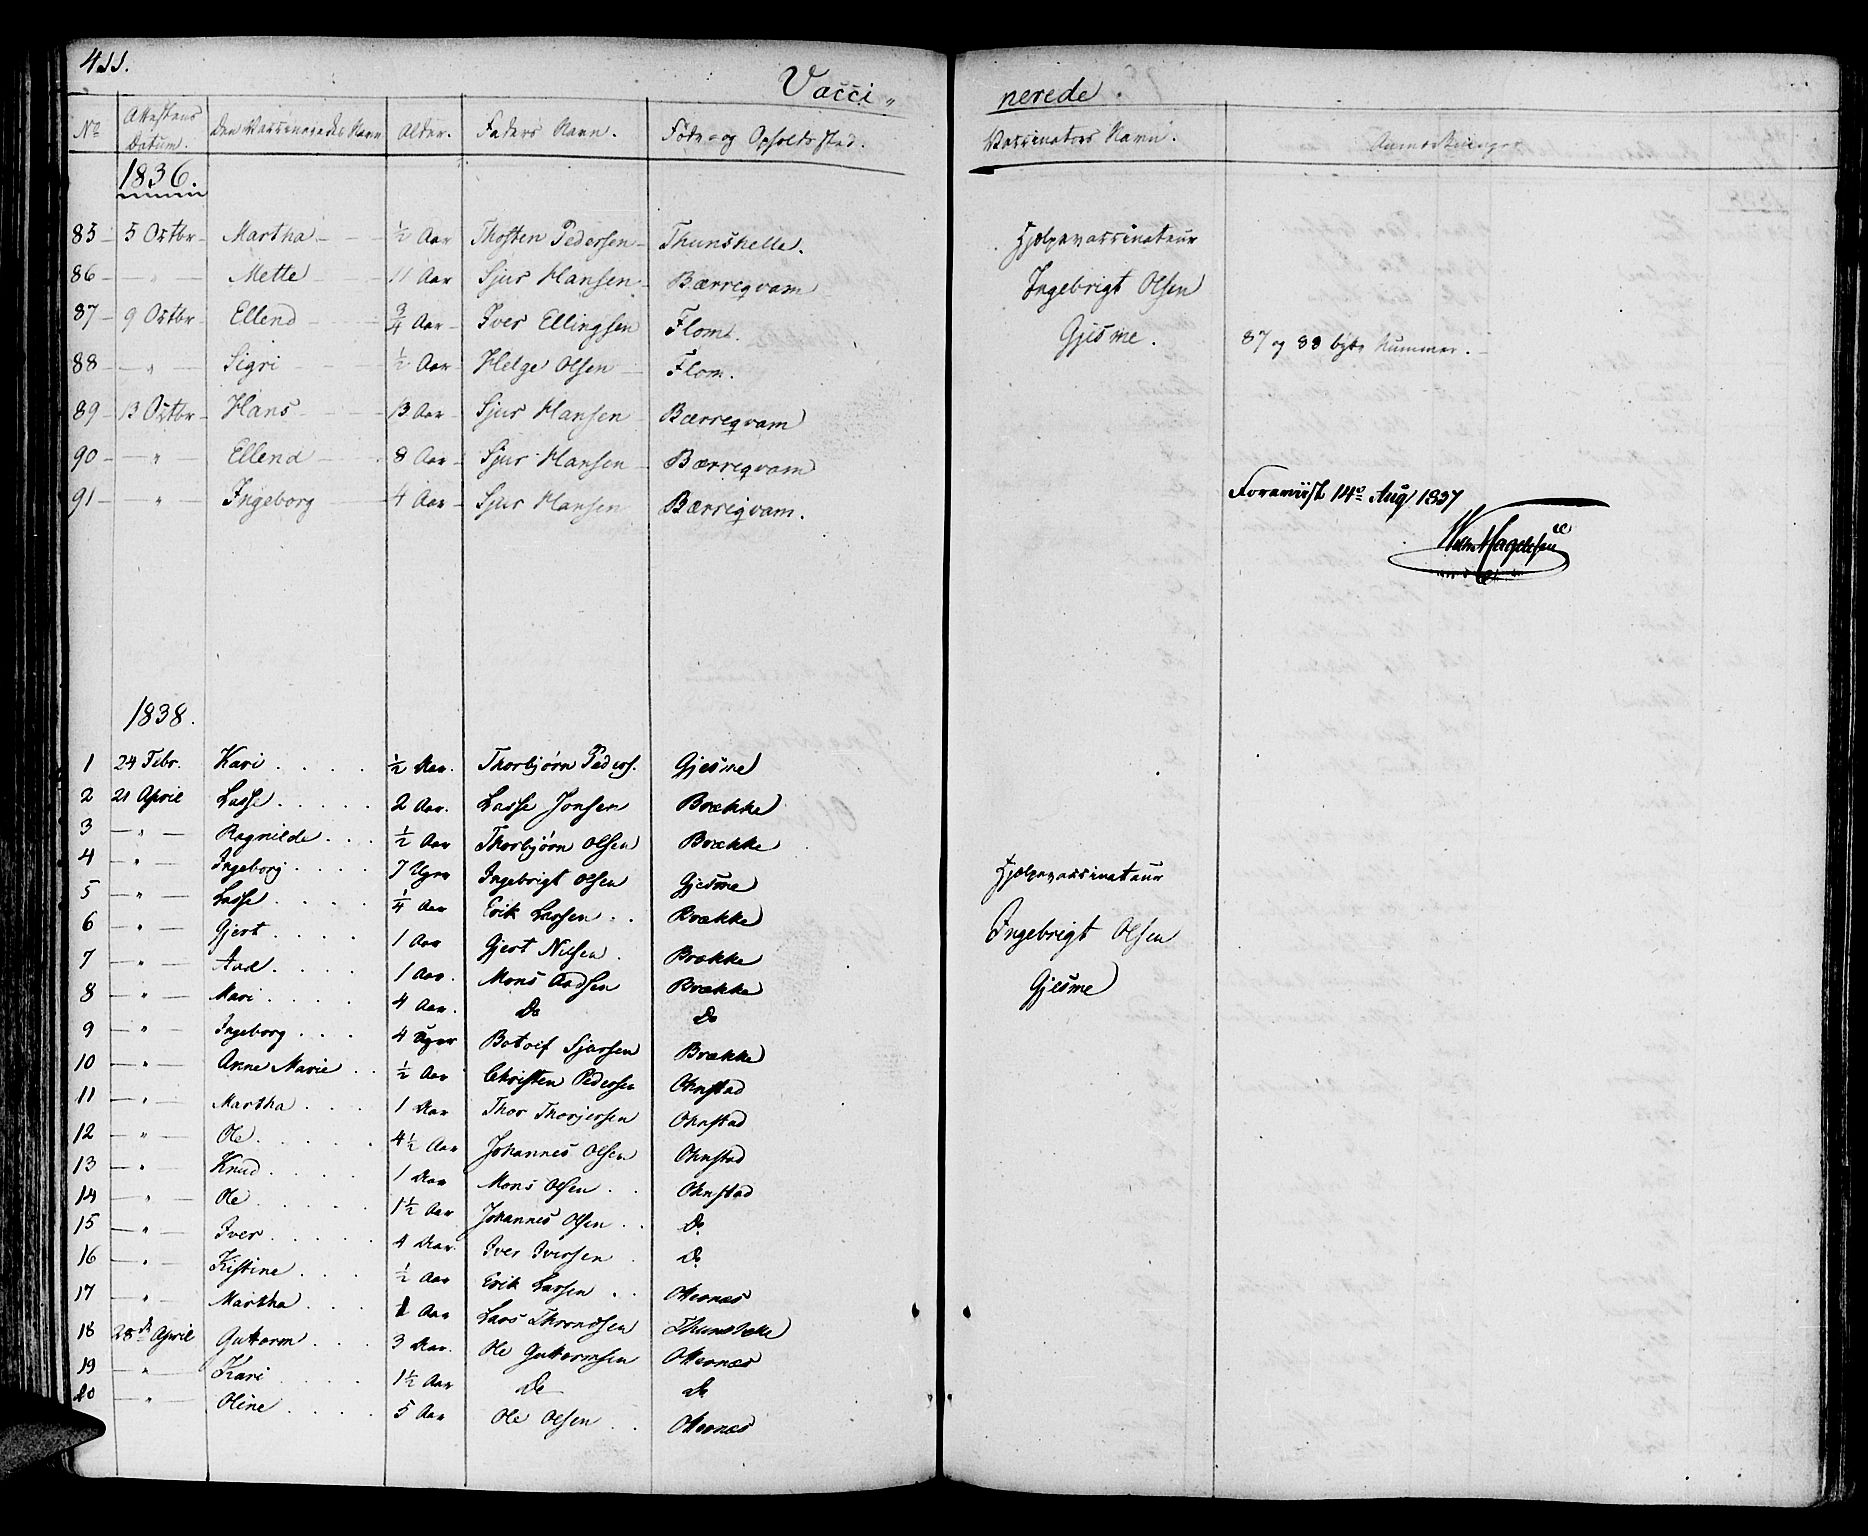 411.
Vacci-nerede.
No Attestens Datum. Den Vaccineredes Navn Alder. Faders Navn. Føde- og Opholds Sted. Vaccinateurs Navn. Anmærkninger
1836.
85 5 Octbr Martha ½ Aar Thosten Pedersen Thunshelle. Hjelpevaccinateur
86 " Mette 11 Aar Sjur Hansen Bærreqvam Ingebrigt Olsen
87 9 Octbr Ellend ¾ Aar Iver Ellingsen Flom. Gjesme. 87 og 88 bytte Nummer.
88 " Sigri ½ Aar Helge Olsen Flom.
89 13 Octbr Hans 13 Aar Sjur Hansen Bærreqvam
90 " Ellend 8 Aar Sjur Hansen Bærreqvam
91 " Ingeborg 4 Aar Sjur Hansen Bærreqvam.
Foreviist 14de Aug 1837
1838.
1 24 Febr. Kari ½ Aar. Thorbjørn Peders. Gjesme
2 21 April Lasse 2 Aar. Lasse Jonsen Brække
3 " Ragnilde ½ Aar Thorbjørn Olsen Brække
4 " Ingeborg 7 Uger Ingebrigt Olsen Gjesme Hjelpevaccinateur
5 " Lasse ¼ Aar Erik Larsen Brække
6 " Gjert 1 Aar Gjert Nielsen Brække Ingebrigt Olsen
7 " Aad 1 Aar. Mons Aadsen Brække Gjesme
8 " Mari 4 Aar. Do Do
9 " Ingeborg 4 Uger Botolf Sjursen Brække
10 " Anne Marie ½ Aar Christen Pedersen Ohnstad
11 " Martha 1 Aar Thor Thorjersen Ohnstad
12 " Ole 4½ Aar Johannes Olsen Ohnstad
13 " Knud 1 Aar Mons Olsen Ohnstad
14 " Ole 1½ Aar Johannes Olsen Do
15 " Iver 4 Aar. Iver Iversen Do
16 " Kistine ½ Aar Erik Larsen Otternæs
17 " Martha 1 Aar Lars Throndsen
18 28de April Guttorm 3 Aar. Ole Guttormsen Otternæs
19 " Kari 1½ Aar Do Do
20 " Oline 5 Aar Ole Olsen Otternæs